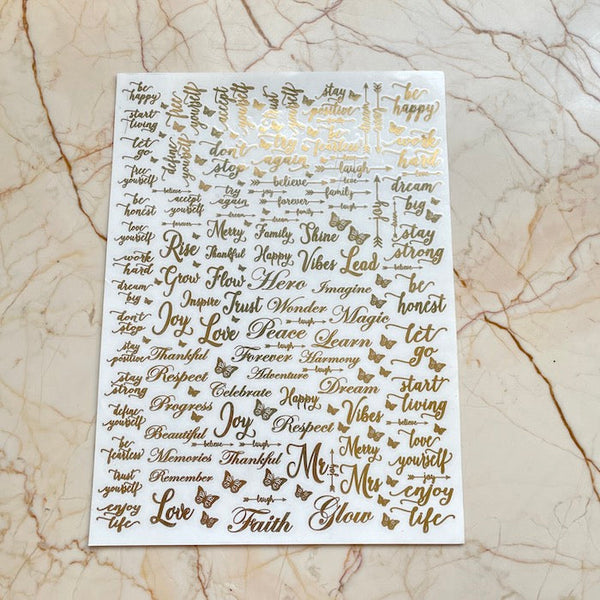 be happy
start living
let go
free yourself
be honest
love yourself
work hard
dream big
don't stop
stay positive
stay strong
define yourself
be fearless
trust yourself
enjoy life
define yourself
free yourself
accept yourself
trust yourself
stay positive
be fearless
don't stop
try again
laugh
love
believe
believe
family
try again
family
accept yourself
forever
laugh
forever
dream
dream
joy
be happy
work hard
dream big
stay strong
believe
be honest
let go
start living
love yourself
joy
enjoy life
Merry Family Shine
Rise Thankful Happy Vibes Lead
Grow Flow Hero Imagine
Inspire Trust Wonder Magic
Joy Love Peace Learn
laugh
Thankful Forever Harmony
laugh
Respect Adventure
Celebrate Dream
Progress Happy Vibes
Joy Respect
Beautiful believe laugh Merry
Memories Thankful Mr
Mrs
Remember
laugh
Love Faith Glow